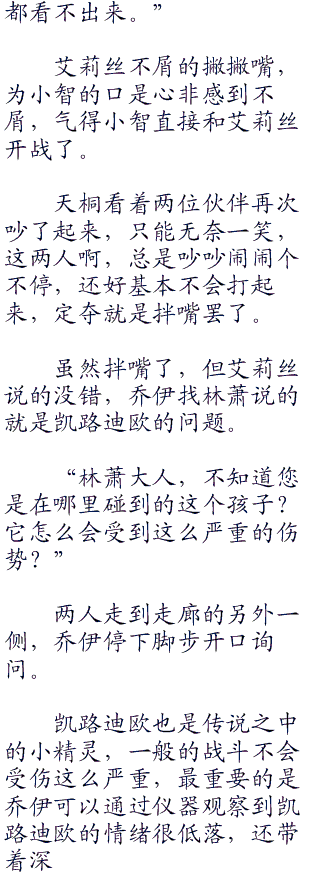 都看不出来。”
艾莉丝不屑的撇撇嘴，
为小智的口是心非感到不
屑，气得小智直接和艾莉丝
开战了。
天桐看着两位伙伴再次
吵了起来，只能无奈一笑，
这两人啊，总是吵吵闹闹个
不停，还好基本不会打起
来，定夺就是拌嘴罢了。
虽然拌嘴了，但艾莉丝
说的没错，乔伊找林萧说的
就是凯路迪欧的问题。
“林萧大人，不知道您
是在哪里碰到的这个孩子？
它怎么会受到这么严重的伤
势？”
两人走到走廊的另外一
侧，乔伊停下脚步开口询
问。
凯路迪欧也是传说之中
的小精灵，一般的战斗不会
受伤这么严重，最重要的是
乔伊可以通过仪器观察到凯
路迪欧的情绪很低落，还带
着深